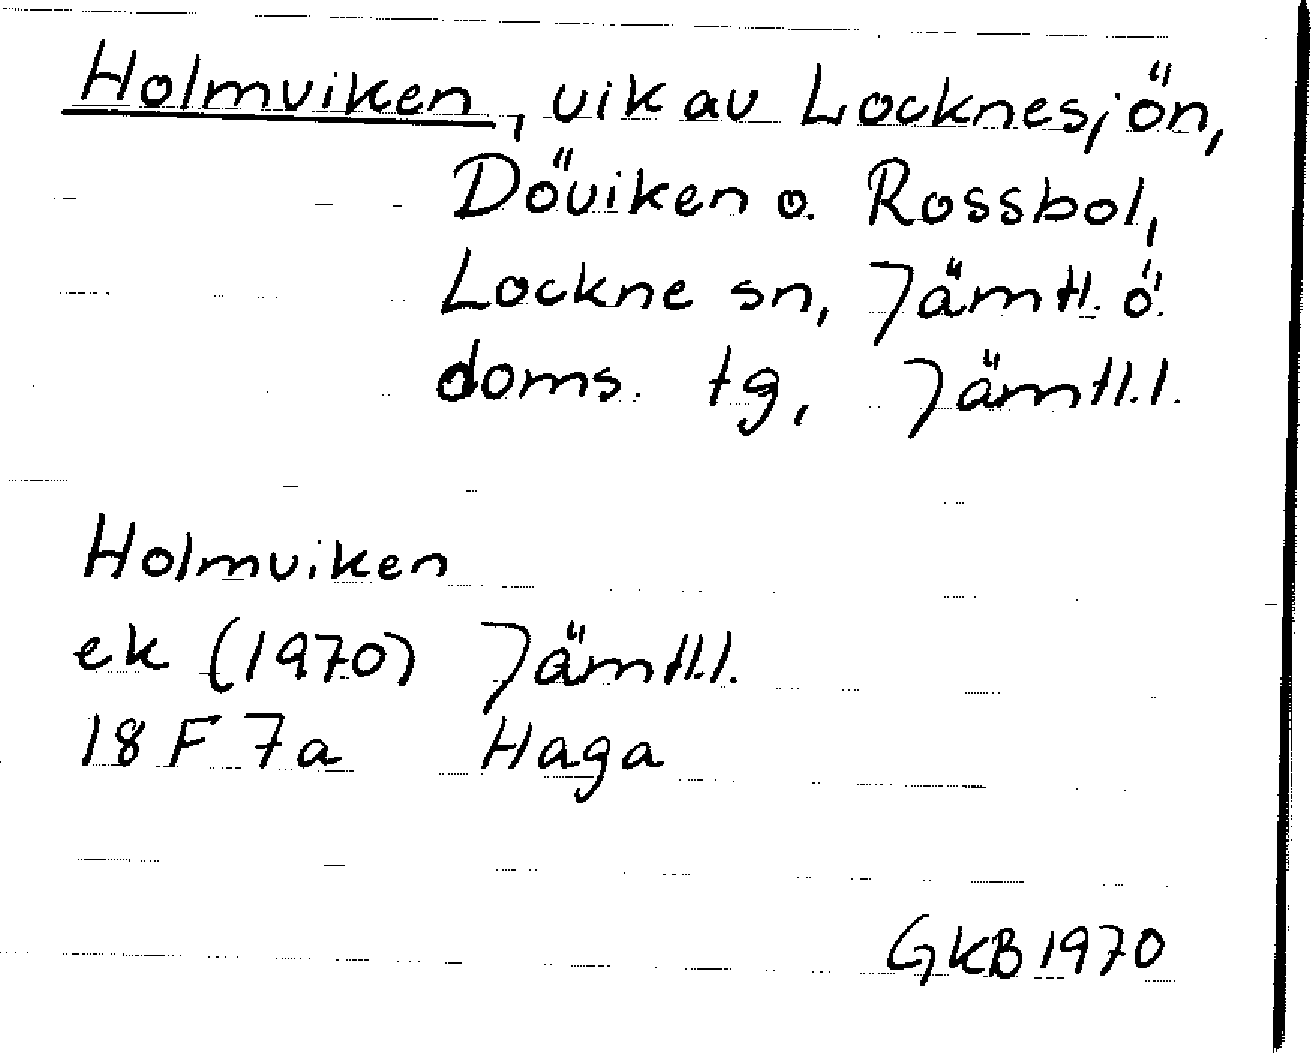 Holmviken, vik av Locknesjön,
Döviken o. Rossbol,
Lockne sn, Jämtl. ö.
doms. tg, Jämtl.l.
Holmviken
ek (1970) Jämtl.l.
18 F 7a Haga
GKB 1970